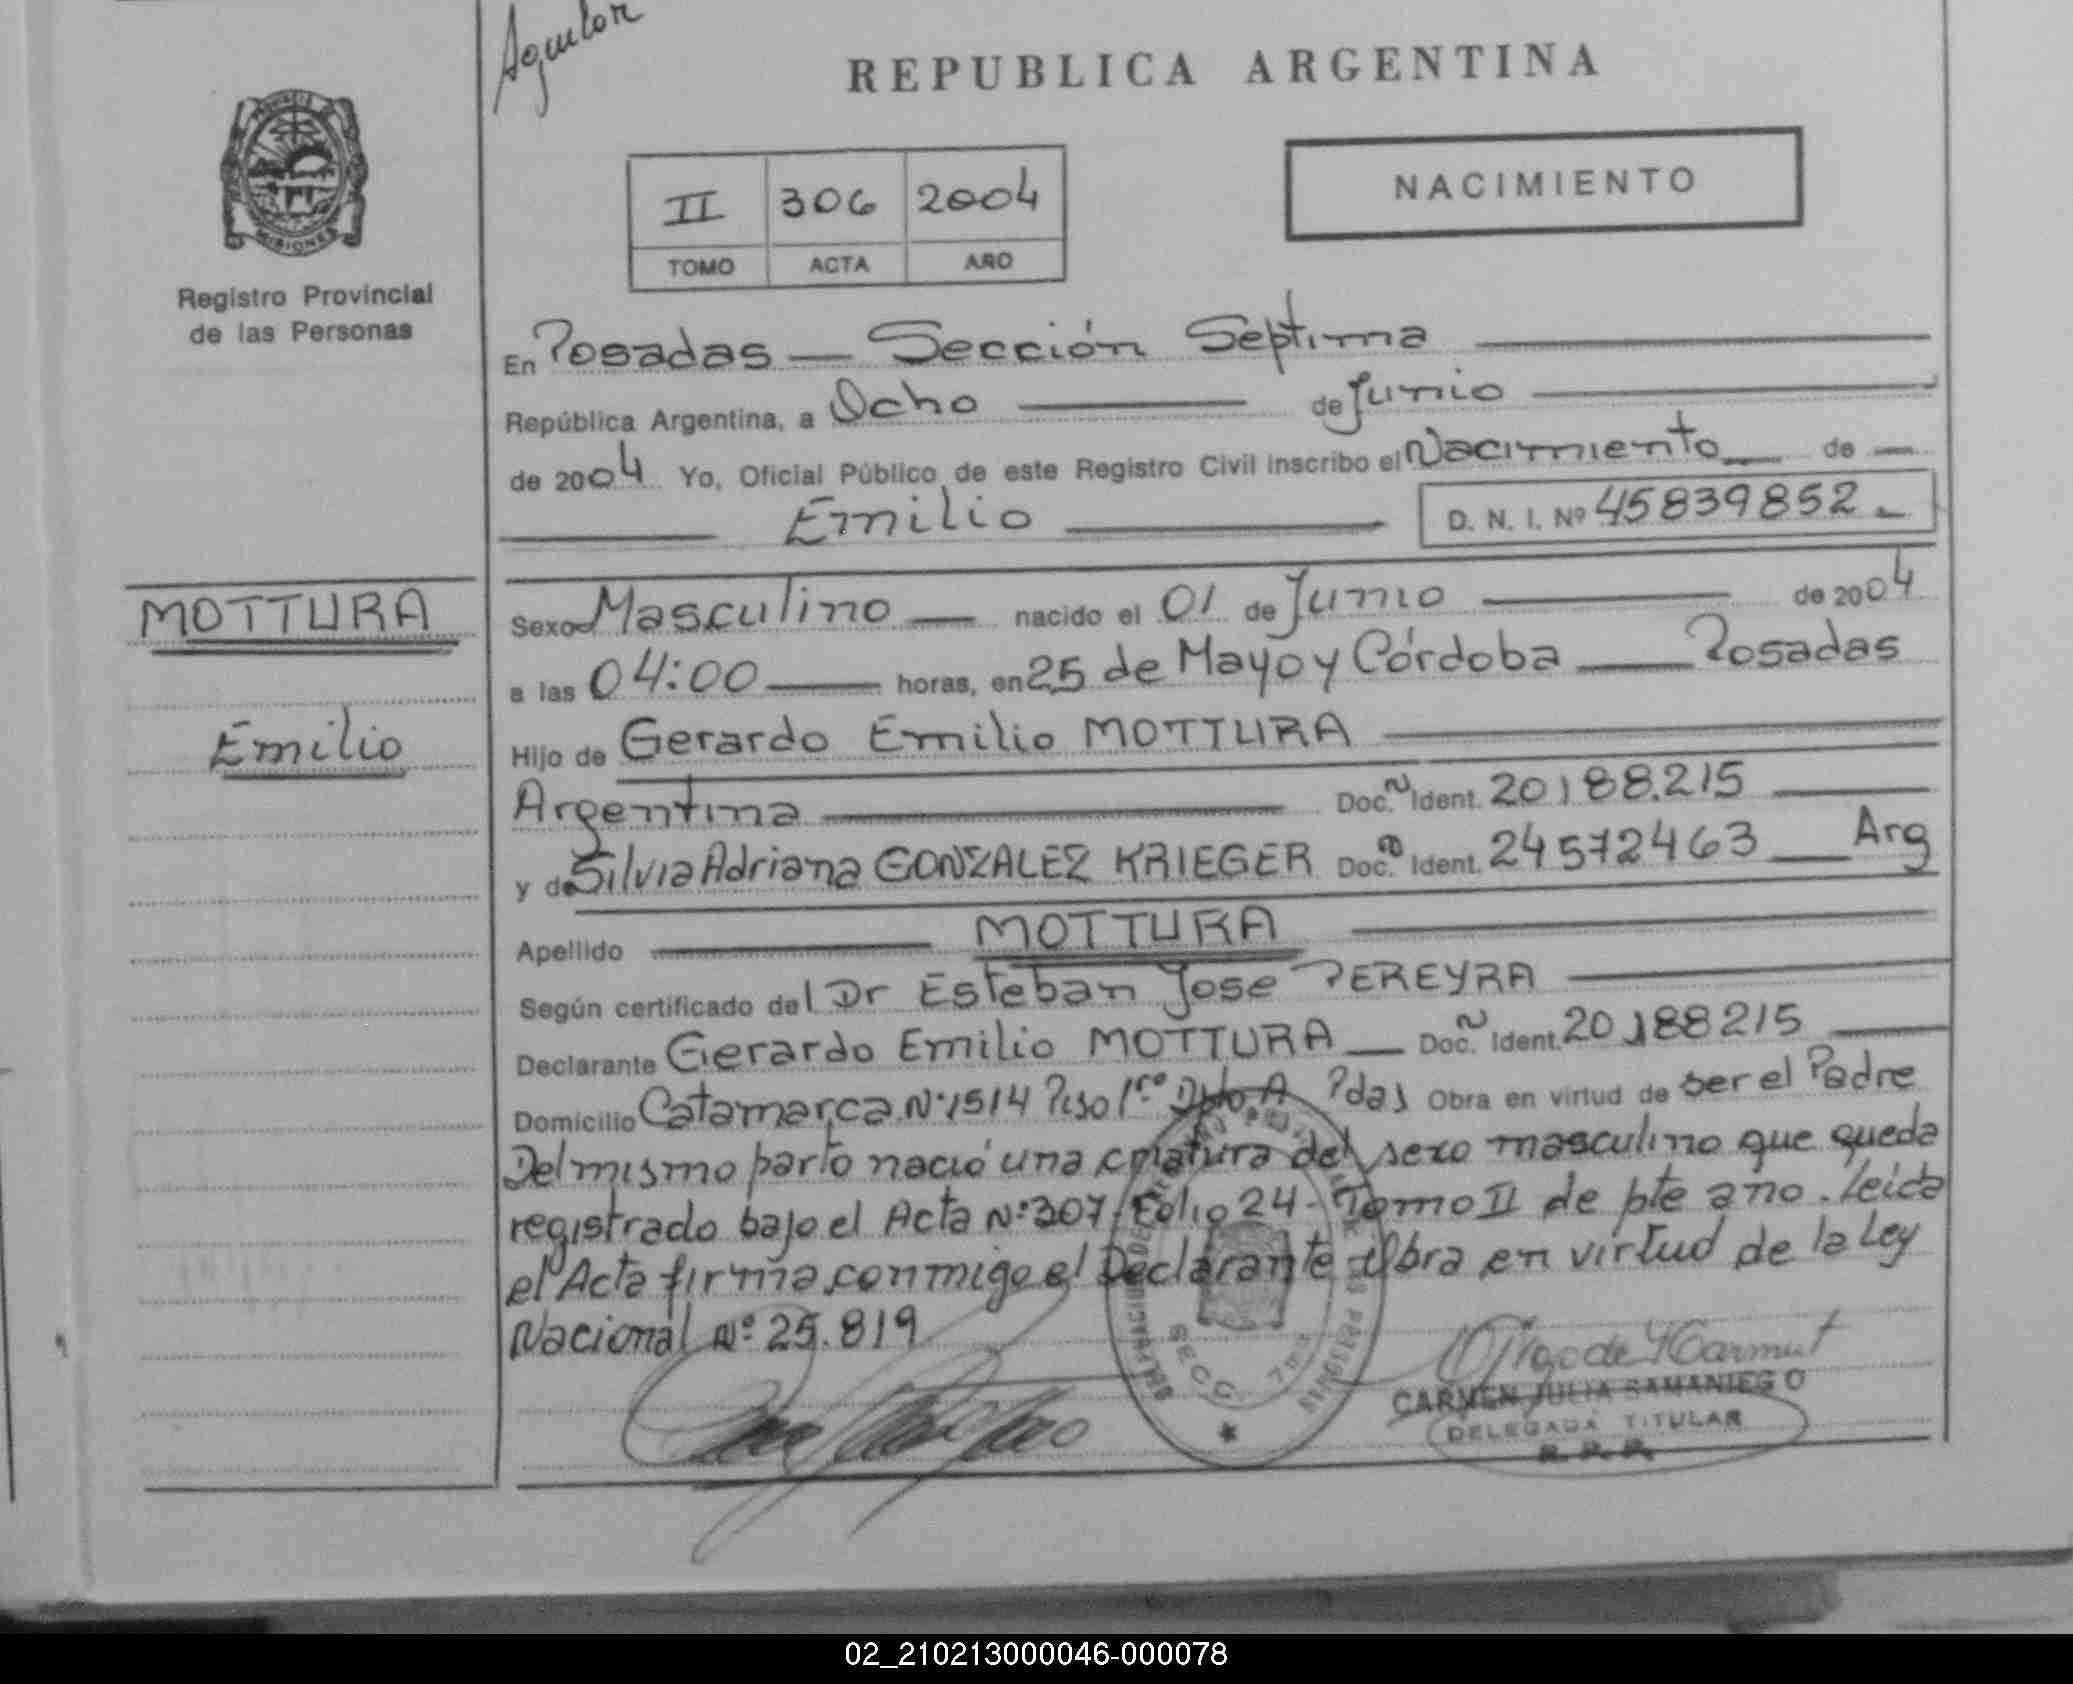 Aguilar
REPUBLICA ARGENTINA
MISIONES
NACIMIENTO
II 306 2004
TOMO ACTA AÑO
Registro Provincial
de las Personas
En Posadas — Sección Septima
República Argentina, a Ocho — de Junio
de 2004 Yo, Oficial Público de este Registro Civil inscribo el Nacimiento — de —
Emilio D. N. I. Nº 45839852.-
MOTTURA
Emilio
Sexo Masculino — nacido el 01 de Junio — de 2004
a las 04:00 — horas, en 25 de Mayo y Córdoba — Posadas
Hijo de Gerardo Emilio MOTTURA
Argentina — Doc. Ident. 20188.215 —
y de Silvia Adriana GONZALEZ KRIEGER Doc. Ident. 24572463 — Arg
Apellido — MOTTURA —
Según certificado del Dr Esteban Jose PEREYRA —
Declarante Gerardo Emilio MOTTURA — Doc. Ident. 20188215 —
Domicilio Catamarca Nº 1514 Piso 1ro Dpto A Pdas Obra en virtud de ser el Padre
Del mismo parto nació una criatura del sexo masculino que queda
registrado bajo el Acta Nº 307 Folio 24 - Tomo II de pte ano. Leida
el Acta firma conmigo el Declarante Obra en virtud de la Ley
Nacional Nº 25.819
SECC. 7
CARMEN JULIA SAMANIEGO
DELEGADA TITULAR
R. P. P.
02_210213000046-000078